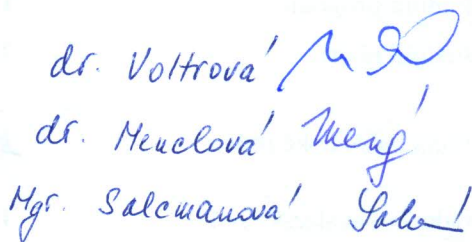 dr. Voltrová
dr. Menclová
Mgr. Salcmanová